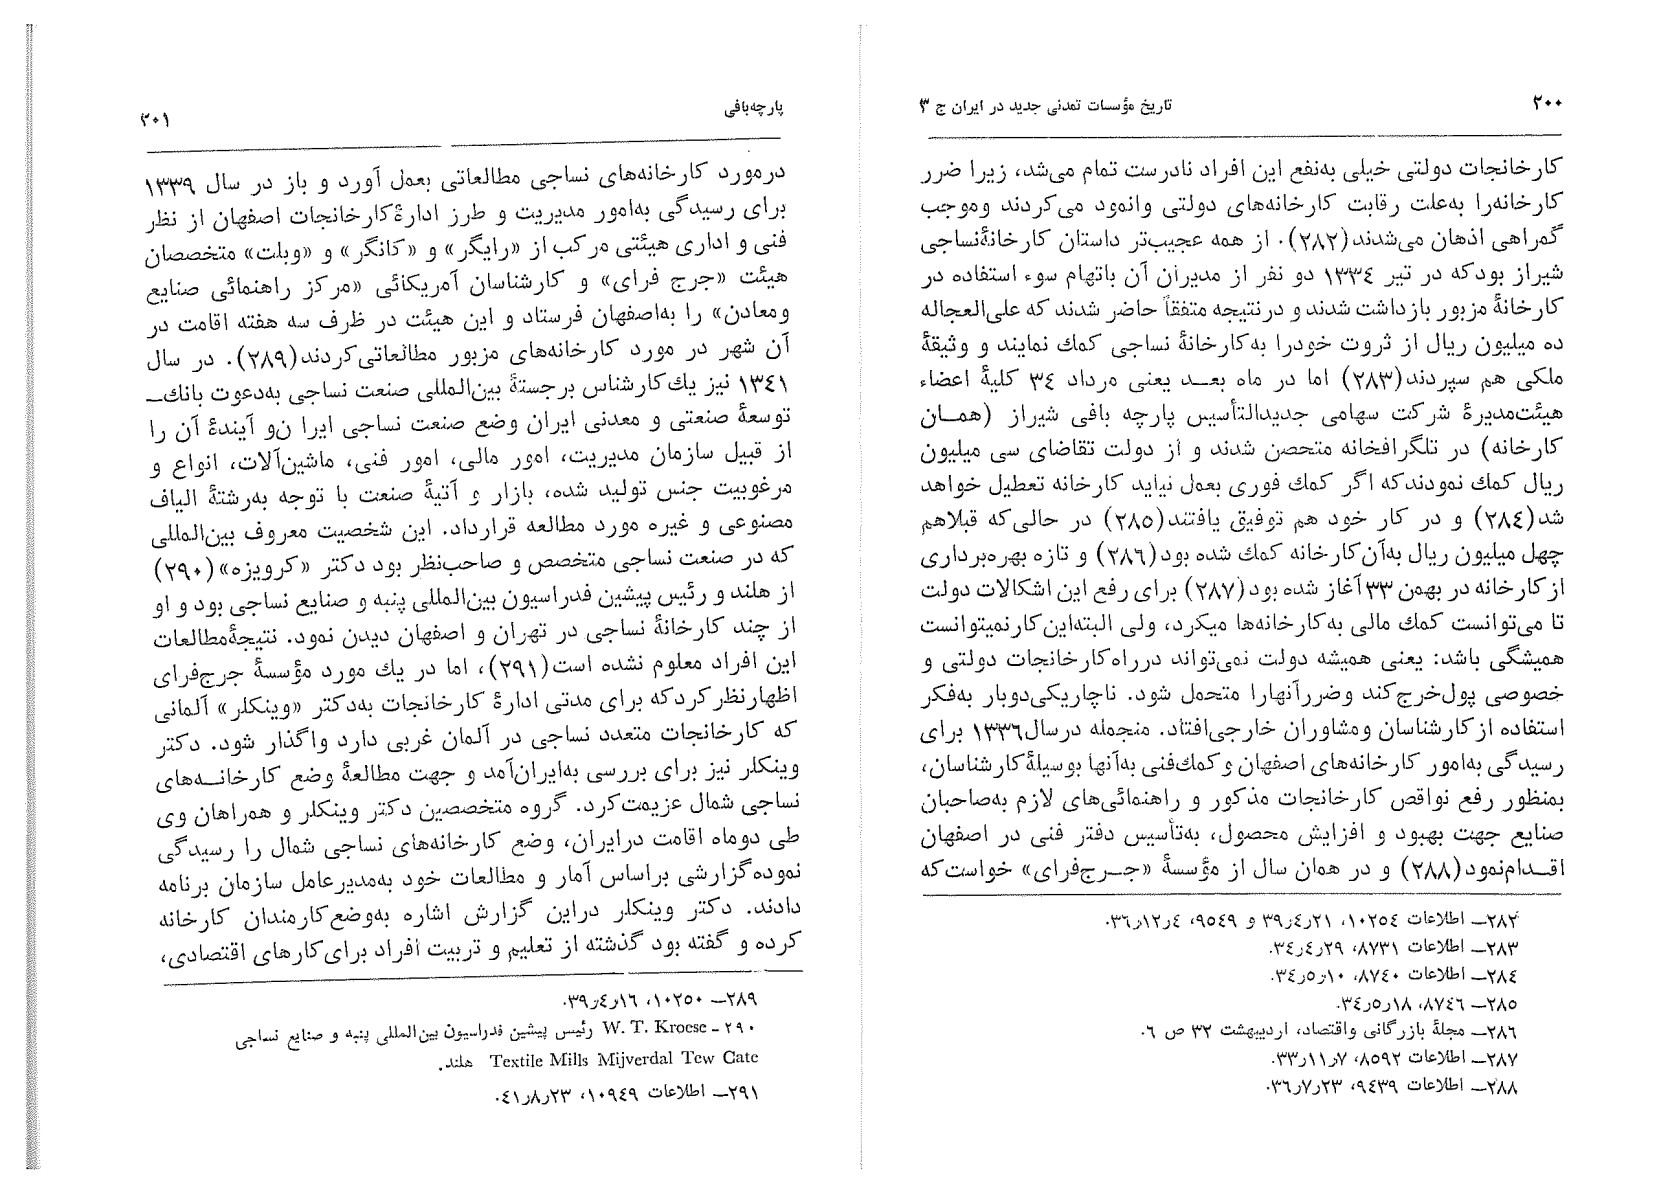 ۲۰۰
تاریخ مؤسسات تمدنی جدید در ایران ج ۳
کارخانجات دولتی خیلی به‌نفع این افراد نادرست تمام می‌شد، زیرا ضرر
کارخانه‌را به‌علت رقابت کارخانه‌های دولتی وانمود می‌کردند وموجب
گمراهی اذهان می‌شدند(۲۸۲). از همه عجیب‌تر داستان کارخانهٔ‌نساجی
شیراز بودکه در تیر ۱۳۳٤ دو نفر از مدیران آن باتهام سوء استفاده در
کارخانهٔ مزبور بازداشت شدند و درنتیجه متفقاً حاضر شدند که علی‌العجاله
ده میلیون ریال از ثروت خودرا به‌کارخانهٔ نساجی کمك نمایند و وثیقهٔ
ملکی هم سپردند(۲۸۳) اما در ماه بعــد یعنی مرداد ۳٤ کلیهٔ اعضاء
هیئت‌مدیرهٔ شرکت سهامی جدیدالتأسیس پارچه بافی شیراز (همــان
کارخانه) در تلگرافخانه متحصن شدند و از دولت تقاضای سی میلیون
ریال کمك نمودندکه اگر کمك فوری بعمل نیاید کارخانه تعطیل خواهد
شد(۲۸٤) و در کار خود هم توفیق یافتند(۲۸۵) در حالی‌که قبلاهم
چهل میلیون ریال به‌آن‌کارخانه کمك شده بود(۲۸٦) و تازه بهره‌برداری
ازکارخانه در بهمن ۳۳ آغاز شده بود(۲۸۷) برای رفع این اشکالات دولت
تا می‌توانست کمك مالی به‌کارخانه‌ها میکرد، ولی البته‌این‌کارنمیتوانست
همیشگی باشد: یعنی همیشه دولت نمی‌تواند درراه‌کارخانجات دولتی و
خصوصی پول‌خرج‌کند وضررآنهارا متحمل شود. ناچاریکی‌دوبار به‌فکر
استفاده ازکارشناسان ومشاوران خارجی‌افتاد. منجمله درسال۱۳۳٦ برای
رسیدگی به‌امور کارخانه‌های اصفهان وکمك‌فنی به‌آنها بوسیلهٔ‌کارشناسان،
بمنظور رفع نواقص کارخانجات مذکور و راهنمائی‌های لازم به‌صاحبان
صنایع جهت بهبود و افزایش محصول، به‌تأسیس دفتر فنی در اصفهان
اقــدام‌نمود(۲۸۸) و در همان سال از مؤسسهٔ «جــرج‌فرای» خواست‌که
۲۸۲ــ اطلاعات ۱۰۲۵٤، ۲۱ر٤ر۳۹ و ۹۵٤۹، ٤ر۱۲ر۳٦.
۲۸۳ــ اطلاعات ۸۷۳۱، ۲۹ر٤ر۳٤.
۲۸٤ــ اطلاعات ۸۷٤۰، ۱۰ر۵ر۳٤.
۲۸۵ــ ۸۷٤٦، ۱۸ر۵ر۳٤.
۲۸٦ــ مجلهٔ بازرگانی واقتصاد، اردیبهشت ۳۲ ص ٦.
۲۸۷ــ اطلاعات ۸۵۹۲، ۷ر۱۱ر۳۳.
۲۸۸ــ اطلاعات ۹٤۳۹، ۲۳ر۷ر۳٦.
پارچه‌بافی
۲۰۱
درمورد کارخانه‌های نساجی مطالعاتی بعمل آورد و باز در سال ۱۳۳۹
برای رسیدگی به‌امور مدیریت و طرز ادارهٔ‌کارخانجات اصفهان از نظر
فنی و اداری هیئتی مرکب از «رایگر» و «کانگر» و «وبلت» متخصصان
هیئت «جرج فرای» و کارشناسان آمریکائی «مرکز راهنمائی صنایع
ومعادن» را به‌اصفهان فرستاد و این هیئت در ظرف سه هفته اقامت در
آن شهر در مورد کارخانه‌های مزبور مطالعاتی‌کردند(۲۸۹). در سال
۱۳٤۱ نیز یك‌کارشناس برجستهٔ بین‌المللی صنعت نساجی به‌دعوت بانك‌ــ
توسعهٔ صنعتی و معدنی ایران وضع صنعت نساجی ایرا ن‌و آیندهٔ آن را
از قبیل سازمان مدیریت، امور مالی، امور فنی، ماشین‌آلات، انواع و
مرغوبیت جنس تولید شده، بازار و آتیهٔ صنعت با توجه به‌رشتهٔ الیاف
مصنوعی و غیره مورد مطالعه قرارداد. این شخصیت معروف بین‌المللی
که در صنعت نساجی متخصص و صاحب‌نظر بود دکتر «کرویزه»(۲۹۰)
از هلند و رئیس پیشین فدراسیون بین‌المللی پنبه و صنایع نساجی بود و او
از چند کارخانهٔ نساجی در تهران و اصفهان دیدن نمود. نتیجهٔ‌مطالعات
این افراد معلوم نشده است(۲۹۱)، اما در یك مورد مؤسسهٔ جرج‌فرای
اظهارنظر کردکه برای مدتی ادارهٔ کارخانجات به‌دکتر «وینکلر» آلمانی
که کارخانجات متعدد نساجی در آلمان غربی دارد واگذار شود. دکتر
وینکلر نیز برای بررسی به‌ایران‌آمد و جهت مطالعهٔ وضع کارخانــه‌های
نساجی شمال عزیمت‌کرد. گروه متخصصین دکتر وینکلر و همراهان وی
طی دوماه اقامت درایران، وضع کارخانه‌های نساجی شمال را رسیدگی
نموده‌گزارشی براساس آمار و مطالعات خود به‌مدیرعامل سازمان برنامه
دادند. دکتر وینکلر دراین گزارش اشاره به‌وضع‌کارمندان کارخانه
کرده و گفته بود گذشته از تعلیم و تربیت افراد برای‌کارهای اقتصادی،
۲۸۹ــ ۱۰۲۵۰، ۱٦ر٤ر۳۹.
۲۹۰ــ W. T. Kroese رئیس پیشین فدراسیون بین‌المللی پنبه و صنایع نساجی
Textile Mills Mijverdal Tew Cate هلند.
۲۹۱ــ اطلاعات ۱۰۹٤۹، ۲۳ر۸ر٤۱.